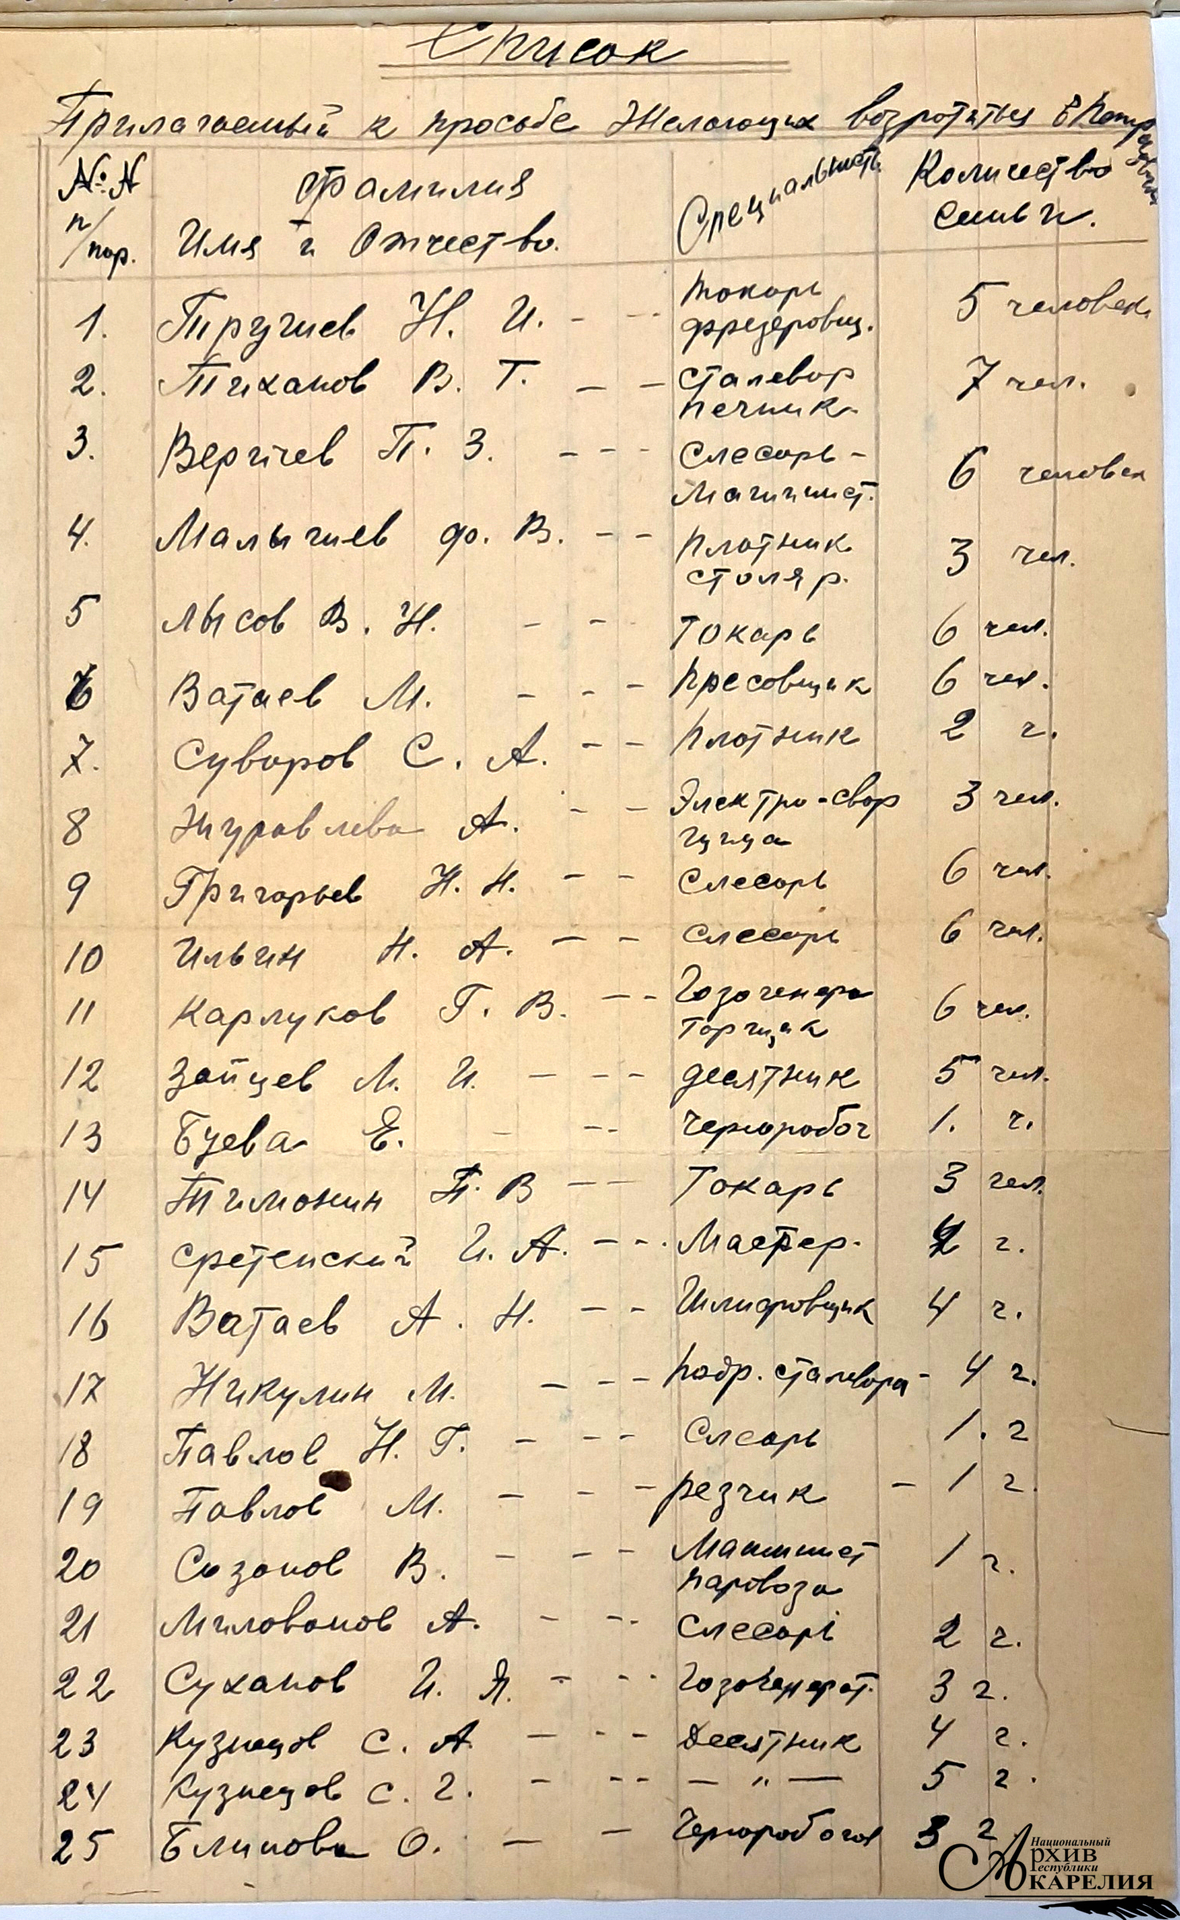 Список
Прилагаемый к просьбе Желающих возротится в Петрозаводск
№ N фамилия Специальность Количество
п/пор. Имя и Отчество. семьи.
1. Тручиев Н. И. - -- токарь 5 человек.
фрезеровщ.
2. Тиханов В. Т. - - сталевор 7 чел.
печник
3. Вергичев П. З. - - - Слесорь - 6 человек
Машинист.
4. Малышев ф. В. - - плотник 3 чел.
столяр.
5 Лысов В. Н. - - токарь 6 чел.
6 Ватаев М. - - - пресовщик 6 чел.
7. Суворов С. А. - - плотник 2 ч.
8 Журавлева А. - - Электро-свор 3 чел.
щица
9 Григорьев Н. Н. - - слесорь 6 чел.
10 Ильин Н. А. - - слесорь 6 чел.
11 Карлуков Г. В. -- - Газогенера 6 чел.
торщик
12 Зайцев М. И. - - - десятник 5 чел.
13 Буева Е. - -- чернорабоч 1. ч.
14 Тимонин П. В - - Токарь 3 чел.
15 Сретенский И. А. - - . Мастер. 2 ч.
16 Ватаев А. Н. - - Шлифовщик 4 ч.
17 Никулин М. - - - подр. сталевора - 4 ч.
18 Павлов Н. Г. - - - Слсарь 1. ч
19 Павлов М. - - - резчик - 1 ч.
20 Сазанов В. - - - Машинист 1 ч.
паровоза
21 Милованов А. - -- слесорь 2 ч.
22 Суханов И. Я. - -- газогенерат. 3 ч.
23 Кузнецов С. А - - - Десятник 4 ч.
24 Кузнецов С. Г. - -- — " — 5 ч.
25 Блинова О. - - Чернорабочая 3 ч
Национальный
Архив
Республики
Карелия